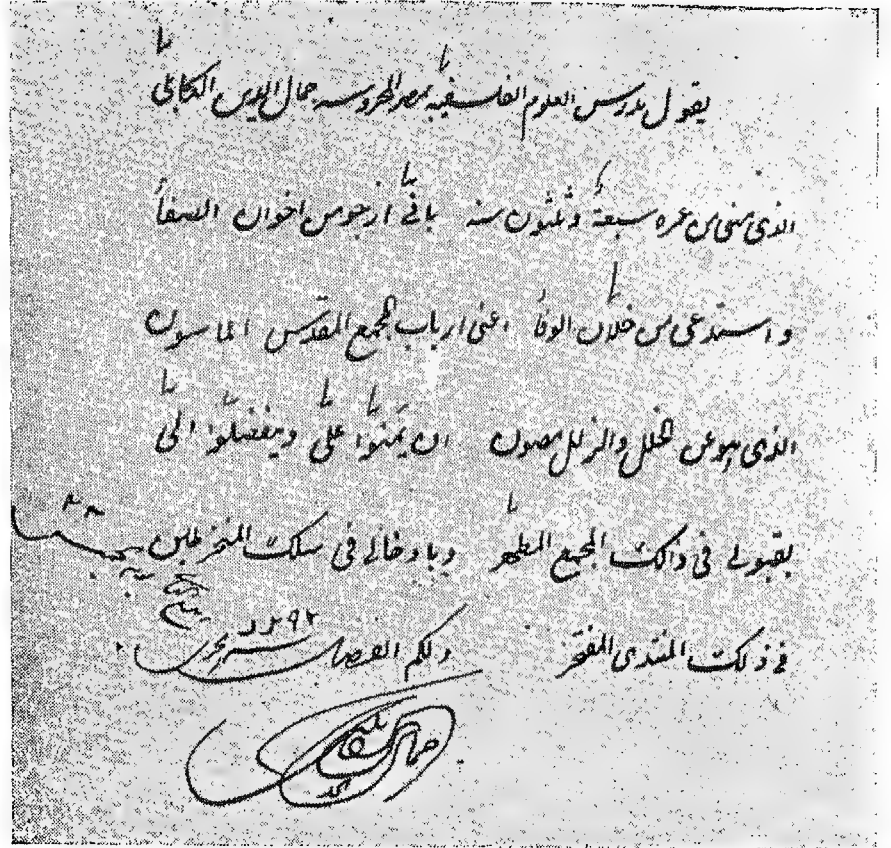 يقول مدرس العلوم الفلسفية بمصر المحروسه جمال الدين الكابلي
الذى مضى من عمره سبعة وثلثون سنه بانى ارجو من اخوان الصفا
واستدعى من خلان الوفا اعنى ارباب المجمع المقدس الماسون
الذى هو عن الخلل والزلل مصون ان يمنوا على ويتفضلوا الى
بقبولى فى ذالك المجمع المطهر وبادخالى فى سلك المنخرطين
فى ذلك المنتدى المفتخر ولكم الفضل
يوم الخميس ٢٢
١٢٩٢
جمال الدين